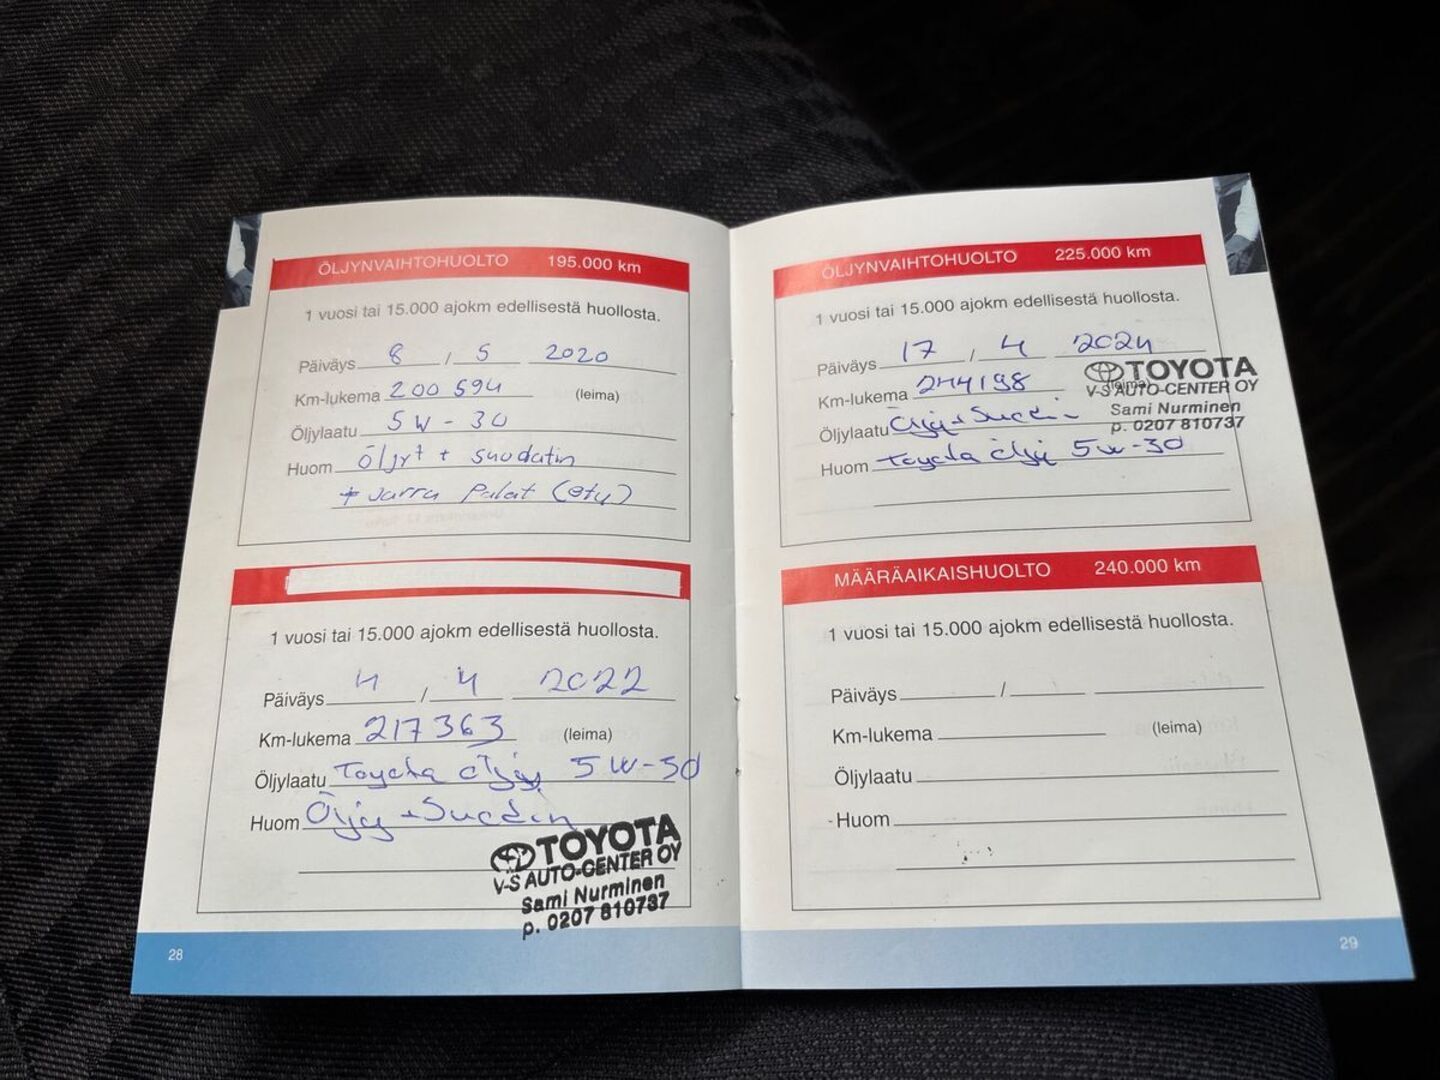 ÖLJYNVAIHTOHUOLTO 195.000 km
1 vuosi tai 15.000 ajokm edellisestä huollosta.
Päiväys 8 / 5 2020
Km-lukema 200 594 (leima)
Öljylaatu 5W-30
Huom öljyt + suodatin
+ Jarru Palat (etu)
1 vuosi tai 15.000 ajokm edellisestä huollosta.
Päiväys 4 / 4 2022
Km-lukema 217363 (leima)
Öljylaatu Toyota öljy 5W-30
Huom Öljy + Suodin
TOYOTA
V-S AUTO-CENTER OY
Sami Nurminen
p. 0207 810737
28
ÖLJYNVAIHTOHUOLTO 225.000 km
1 vuosi tai 15.000 ajokm edellisestä huollosta.
Päiväys 17 / 4 2024
Km-lukema 244198 (leima)
Öljylaatu Öljy + Suodin
Huom Toyota öljy 5W-30
TOYOTA
V-S AUTO-CENTER OY
Sami Nurminen
p. 0207 810737
MÄÄRÄAIKAISHUOLTO 240.000 km
1 vuosi tai 15.000 ajokm edellisestä huollosta.
Päiväys /
Km-lukema (leima)
Öljylaatu
Huom
29